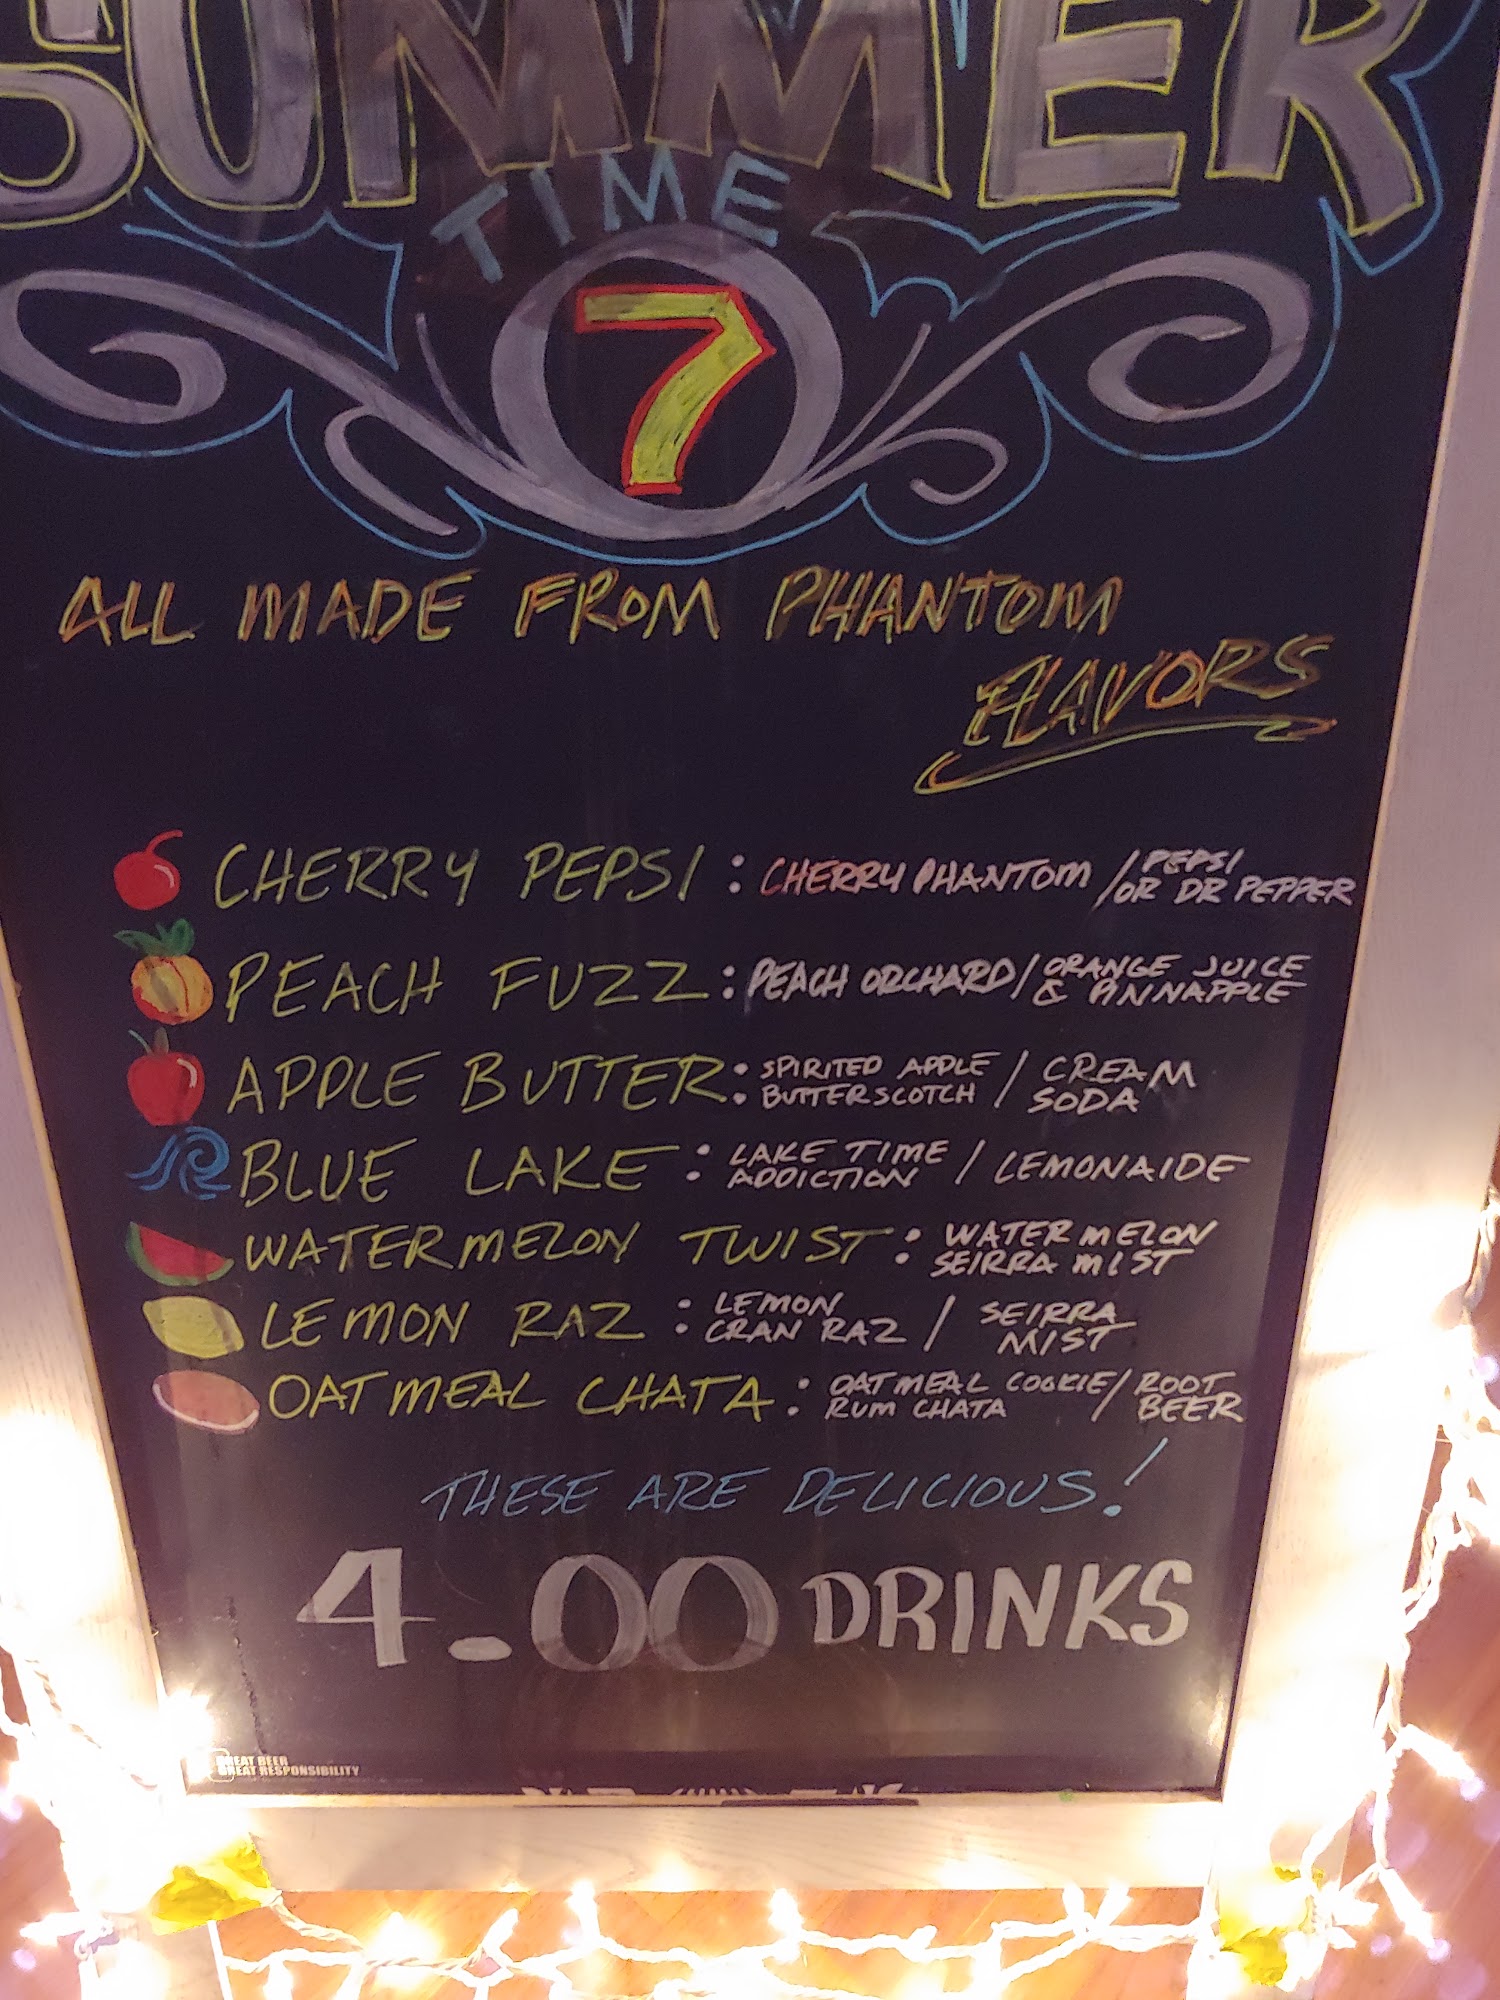 SUMMER
TIME
7
ALL MADE FROM PHANTOM
FLAVORS
CHERRY PEPSI : CHERRY PHANTOM / PEPSI
OR DR PEPPER
PEACH FUZZ : PEACH ORCHARD / ORANGE JUICE
& PINNAPPLE
APPLE BUTTER : SPIRITED APPLE / CREAM
BUTTERSCOTCH SODA
BLUE LAKE : LAKE TIME / LEMONAIDE
ADDICTION
WATERMELON TWIST : WATERMELON
SEIRRA MIST
LEMON RAZ : LEMON / SEIRRA
CRAN RAZ MIST
OATMEAL CHATA : OATMEAL COOKIE / ROOT
RUM CHATA BEER
THESE ARE DELICIOUS!
4.00 DRINKS
GREAT BEER
GREAT RESPONSIBILITY